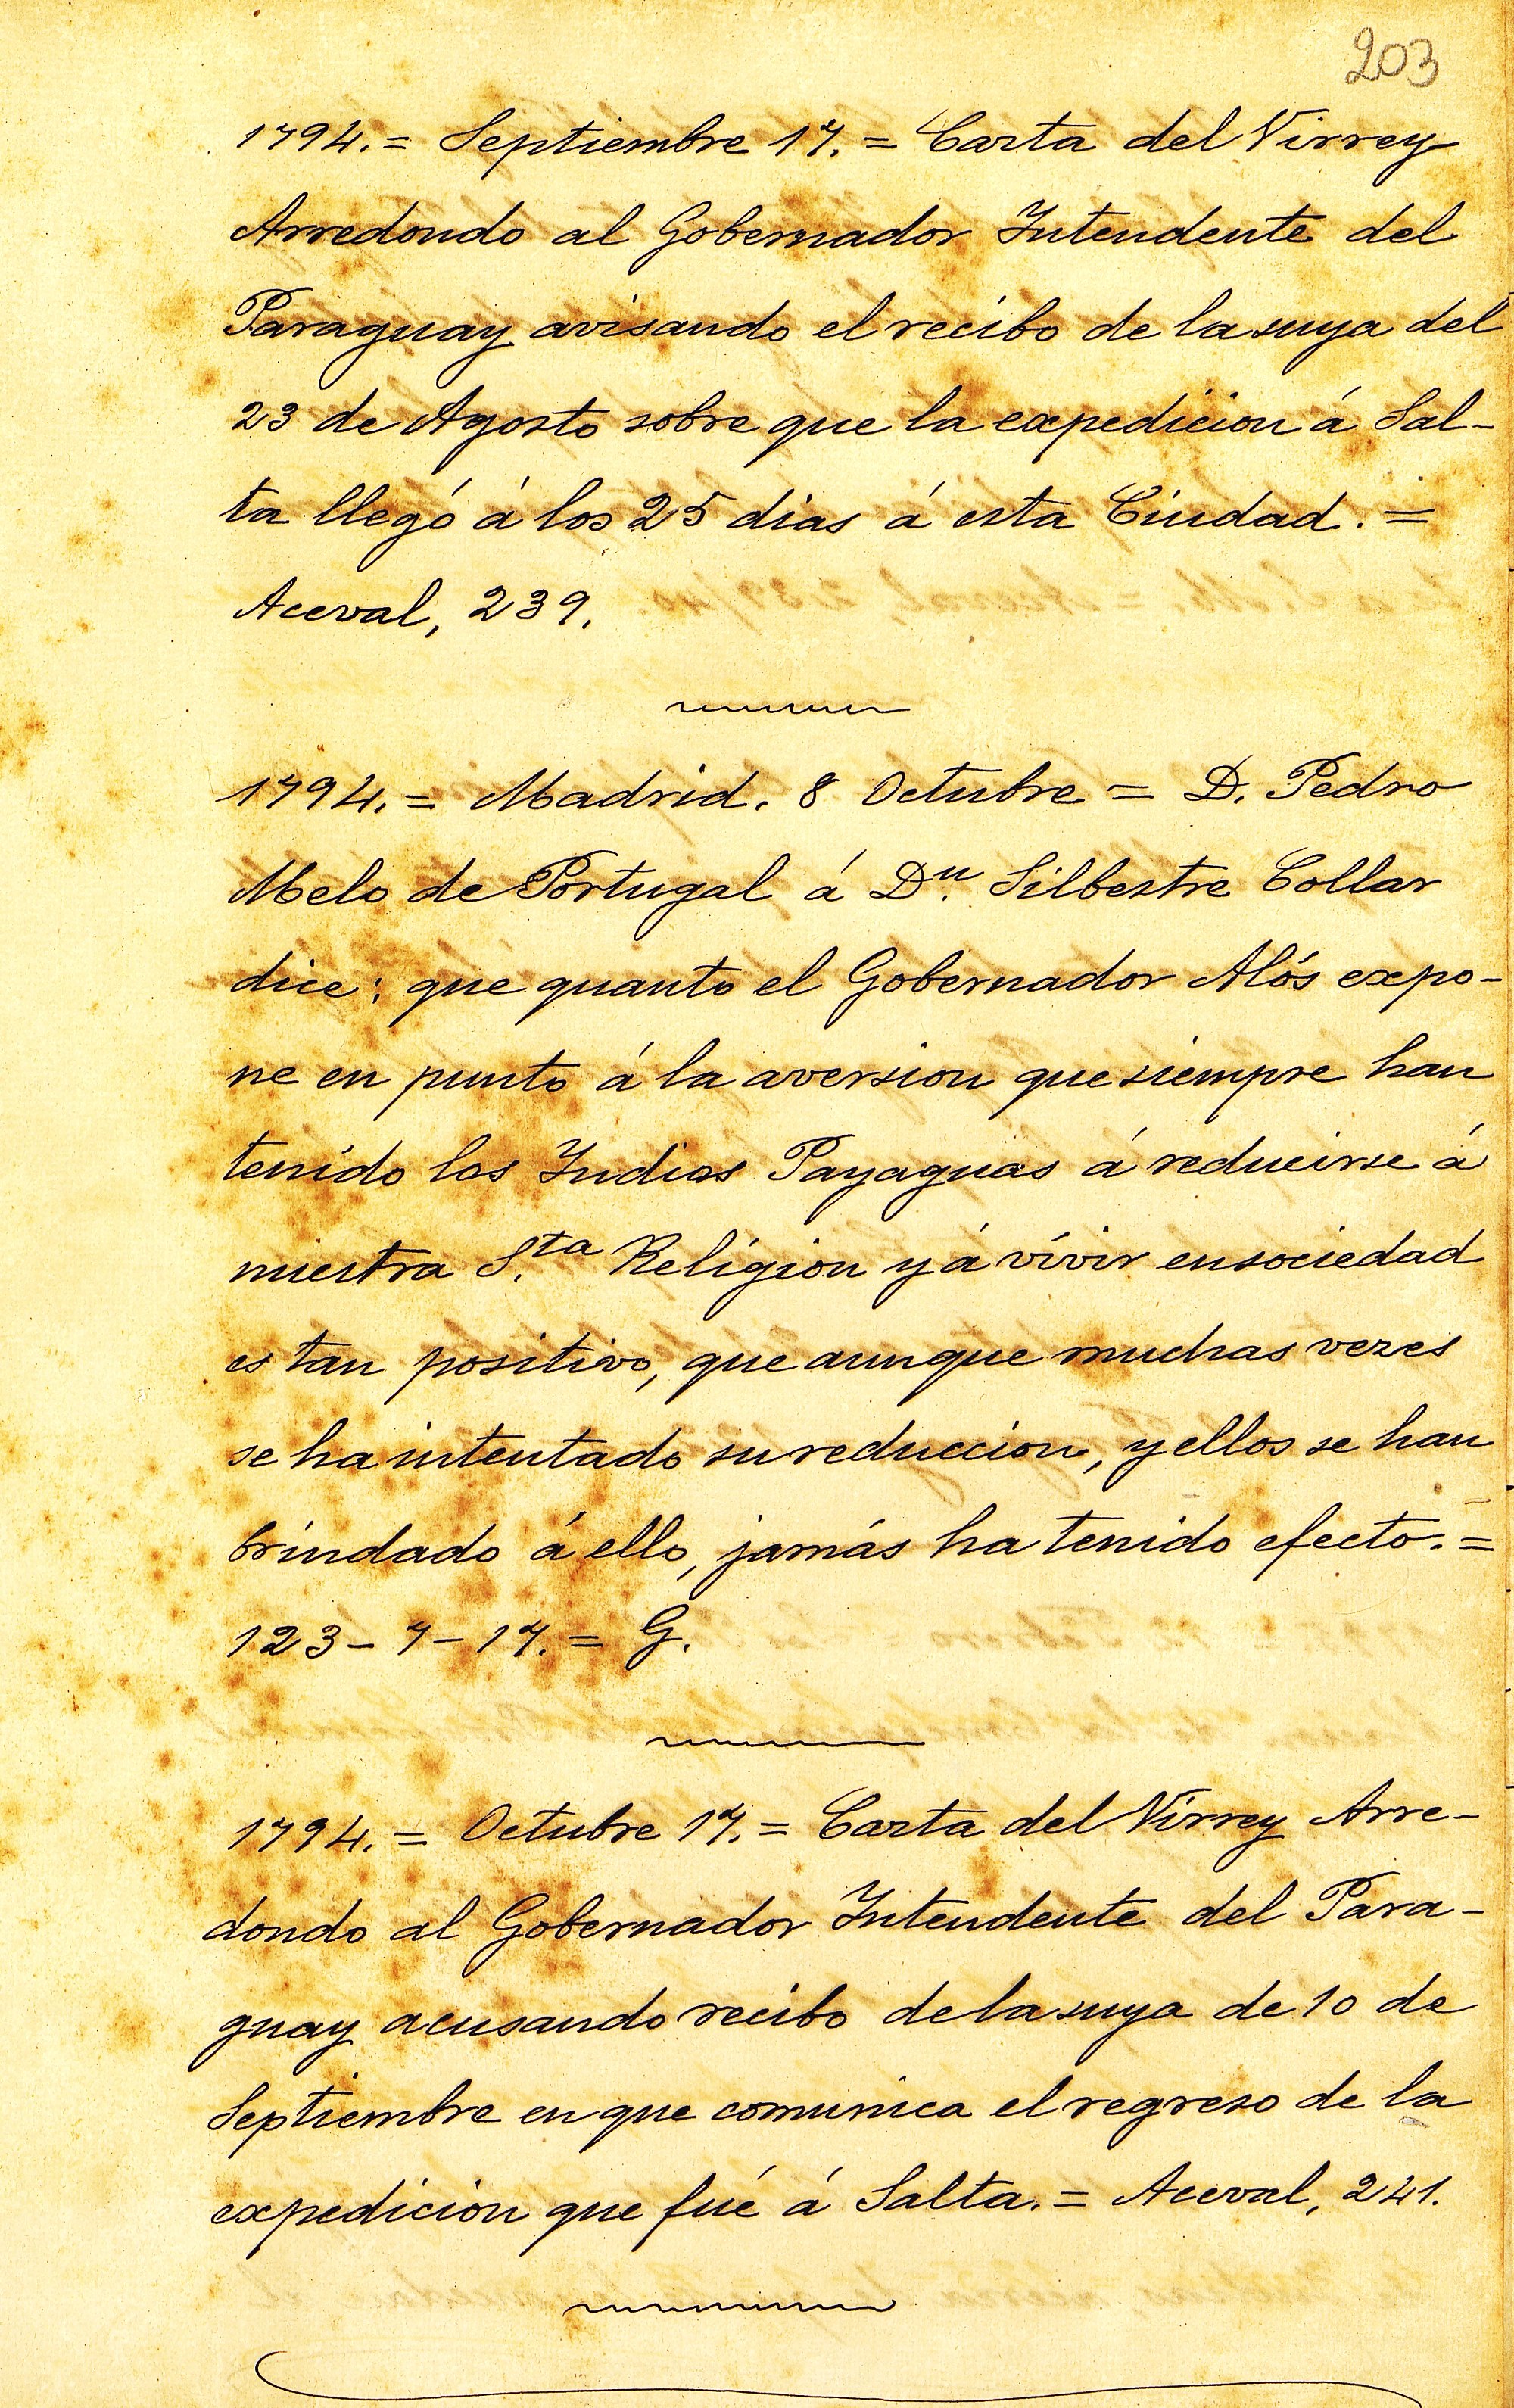 203
1794. = Septiembre 17. = Carta del Virrey
Arredondo al Gobernador Intendente del
Paraguay avisando el recibo de la suya del
23 de Agosto sobre que la expedicion á Sal-
ta llegó á los 25 dias á esta Ciudad. =
Aceval, 239.
1794. = Madrid. 8 Octubre = D. Pedro
Melo de Portugal á Dn. Silbestre Collar
dice: que quanto el Gobernador Alós expo-
ne en punto á la aversion que siempre han
tenido los Indios Payaguas á reducirse á
nuestra S.ta Religion y á vivir en sociedad
es tan positivo, que aunque muchas vezes
se ha intentado su reduccion, y ellos se han
brindado á ello, jamás ha tenido efecto. =
123 - 7 - 17. = G.
1794. = Octubre 17. = Carta del Virrey Arre-
dondo al Gobernador Intendente del Para-
guay acusando recibo de la suya de 10 de
Septiembre en que comunica el regreso de la
expedicion que fué á Salta. = Aceval, 241.